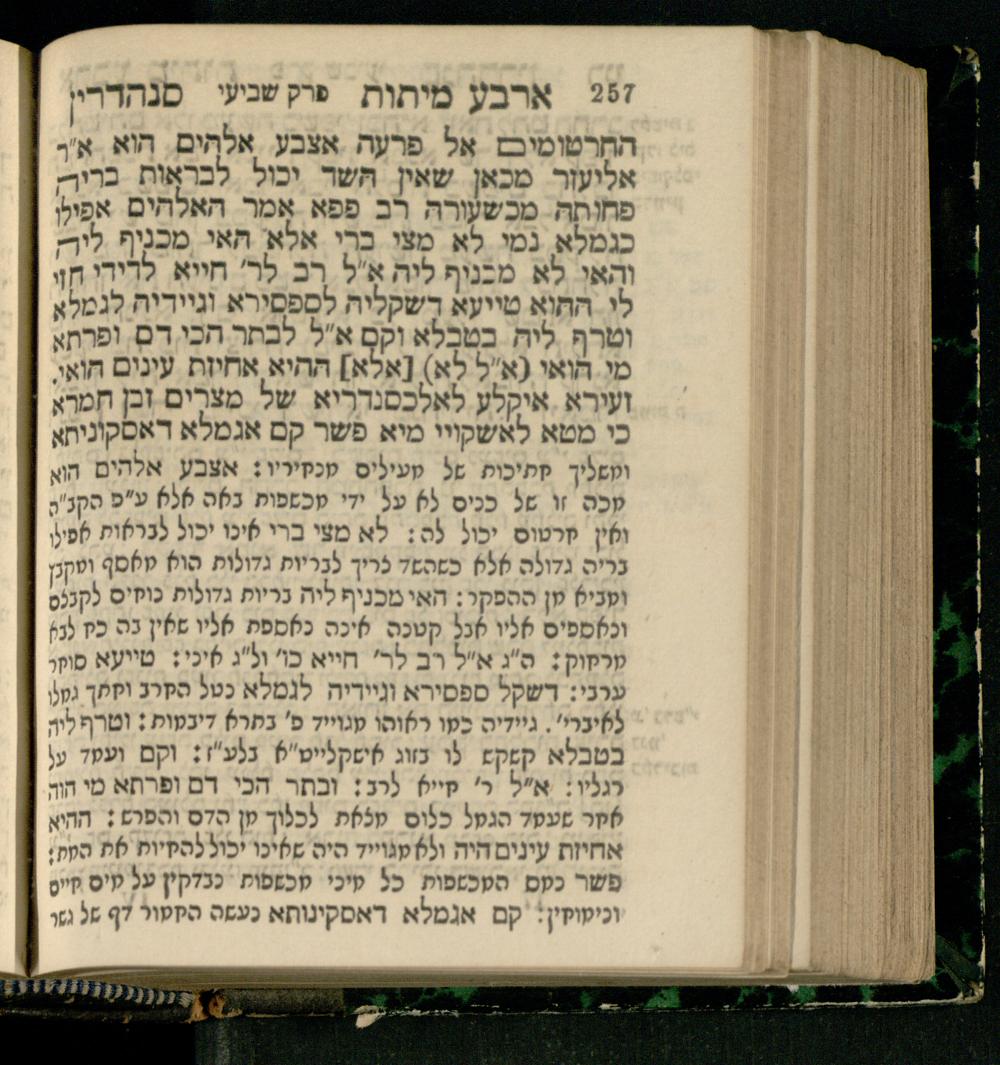 257 ארבע מיתות פרק שביעי סנהדרין
החרטומים אל פרעה אצבע אלהים הוא א"ר
אליעזר מכאן שאין השד יכול לבראות בריה
פחותה מכשעורה רב פפא אמר האלהים אפילו
כגמלא נמי לא מצי ברי אלא האי מכניף ליה
והאי לא מכניף ליה א"ל רב לר' חייא לדידי חזי
לי ההוא טייעא דשקליה לספסירא וגיידיה לגמלא
וטרף ליה בטבלא וקם א"ל לבתר הכי דם ופרתא
מי הואי (א"ל לא) [אלא] ההיא אחיזת עינים הואי.
זעירא איקלע לאלכסנדריא של מצרים זבן חמרא
כי מטא לאשקויי מיא פשר קם אגמלא דאסקוניתא
ומשליך חתיכות של מעילים מנחיריו: אצבע אלהים הוא
מכה זו של כנים לא על ידי מכשפות באה אלא ע"פ הקב"ה
ואין חרטום יכול לה: לא מצי ברי אינו יכול לבראות אפילו
בריה גדולה אלא כשהשד צריך לבריות גדולות הוא מאסף ומקבץ
ומביא מן ההפקר: האי מכניף ליה בריות גדולות נוחים לקבצם
ונאספים אליו אבל קטנה אינה נאספת אליו שאין בה כח לבא
מרחוק: ה"ג א"ל רב לר' חייא כו' ול"ג איכי: טייעא סוחר
ערבי: דשקל ספסירא וגיידיה לגמלא נטל החרב וחתך גמלו
לאיברי'. גיידיה כמו ראוהו מגוייד פ' בתרא דיבמות: וטרף ליה
בטבלא קשקש לו בזוג אישקלייט"א בלע"ז: וקם ועמד על
רגליו: א"ל ר' חייא לרב: ובתר הכי דם ופרתא מי הוה
אחר שעמד הגמל כלום מצאת לכלוך מן הדם והפרש: ההיא
אחיזת עינים היה ולא מגוייד היה שאינו יכול להחיות את המת:
פשר נמס המכשפות כל מיני מכשפות נבדקין על מים חיים
ונימוחין: קם אגמלא דאסקינותא נעשה החמור דף של גשר